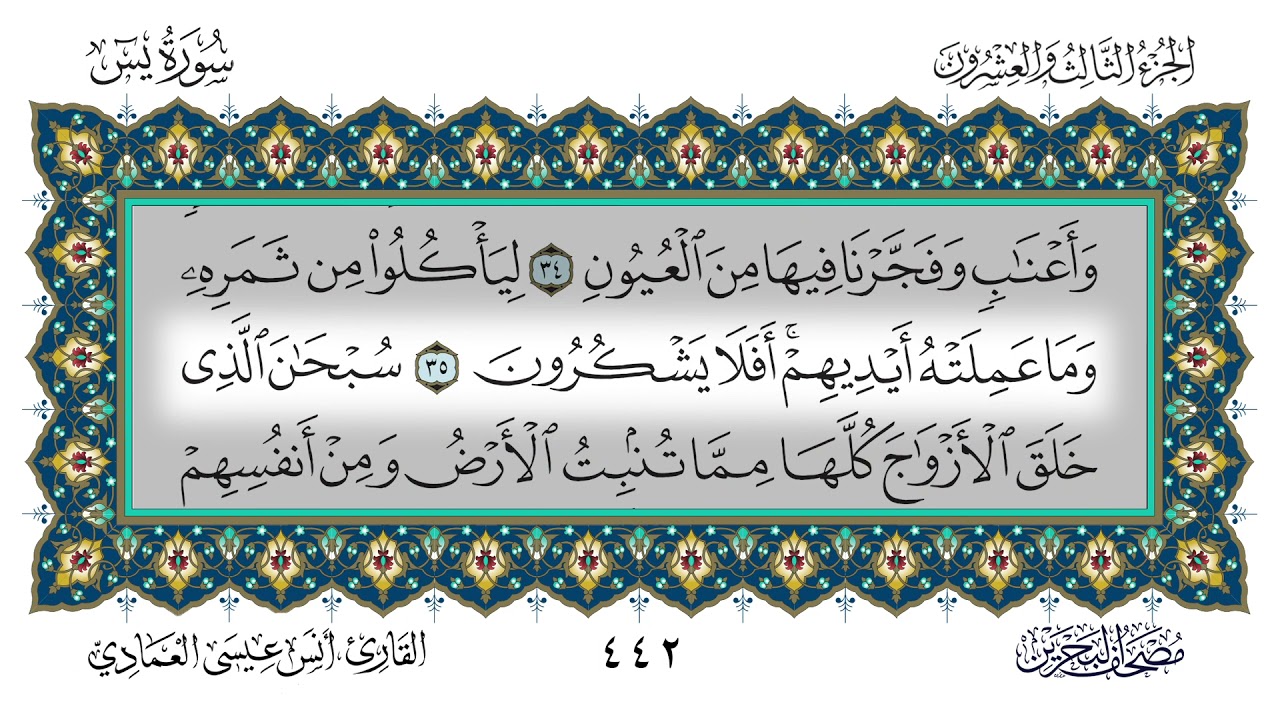 الجزء الثالث والعشرون
سورة يس
وَأَعْنَٰبٍ وَفَجَّرْنَا فِيهَا مِنَ ٱلْعُيُونِ ٣٤ لِيَأْكُلُوا۟ مِن ثَمَرِهِۦ
وَمَا عَمِلَتْهُ أَيْدِيهِمْ ۚ أَفَلَا يَشْكُرُونَ ٣٥ سُبْحَٰنَ ٱلَّذِى
خَلَقَ ٱلْأَزْوَٰجَ كُلَّهَا مِمَّا تُنۢبِتُ ٱلْأَرْضُ وَمِنْ أَنفُسِهِمْ
مصحف البحرين
٤٤٢
القارئ أنس عيسى العمادي